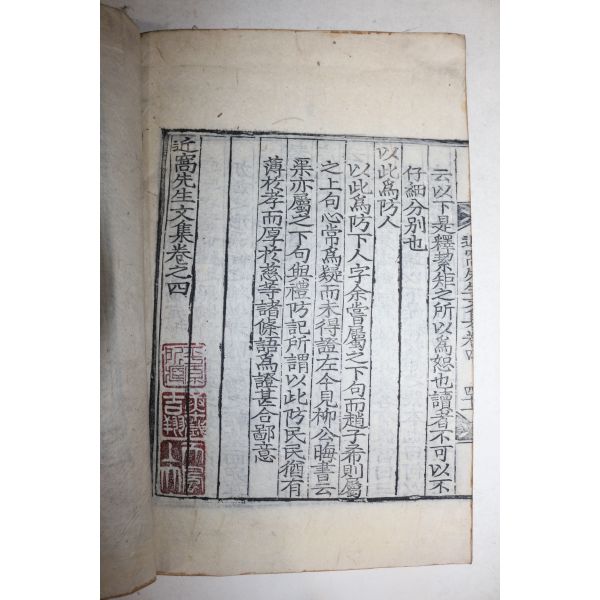 云以下是釋絜矩之所以為恕也讀者不可以不
仔細分別也
以此為防人
以此為防下人字余嘗屬之下句而趙子希則屬
之上句心常為疑而未得證左今見柳公晦書云
栗亦屬之下句與禮防記所謂以此防民民猶有
薄於孝而厚於慈等諸條語為證甚合鄙意
近窩先生文集卷之四